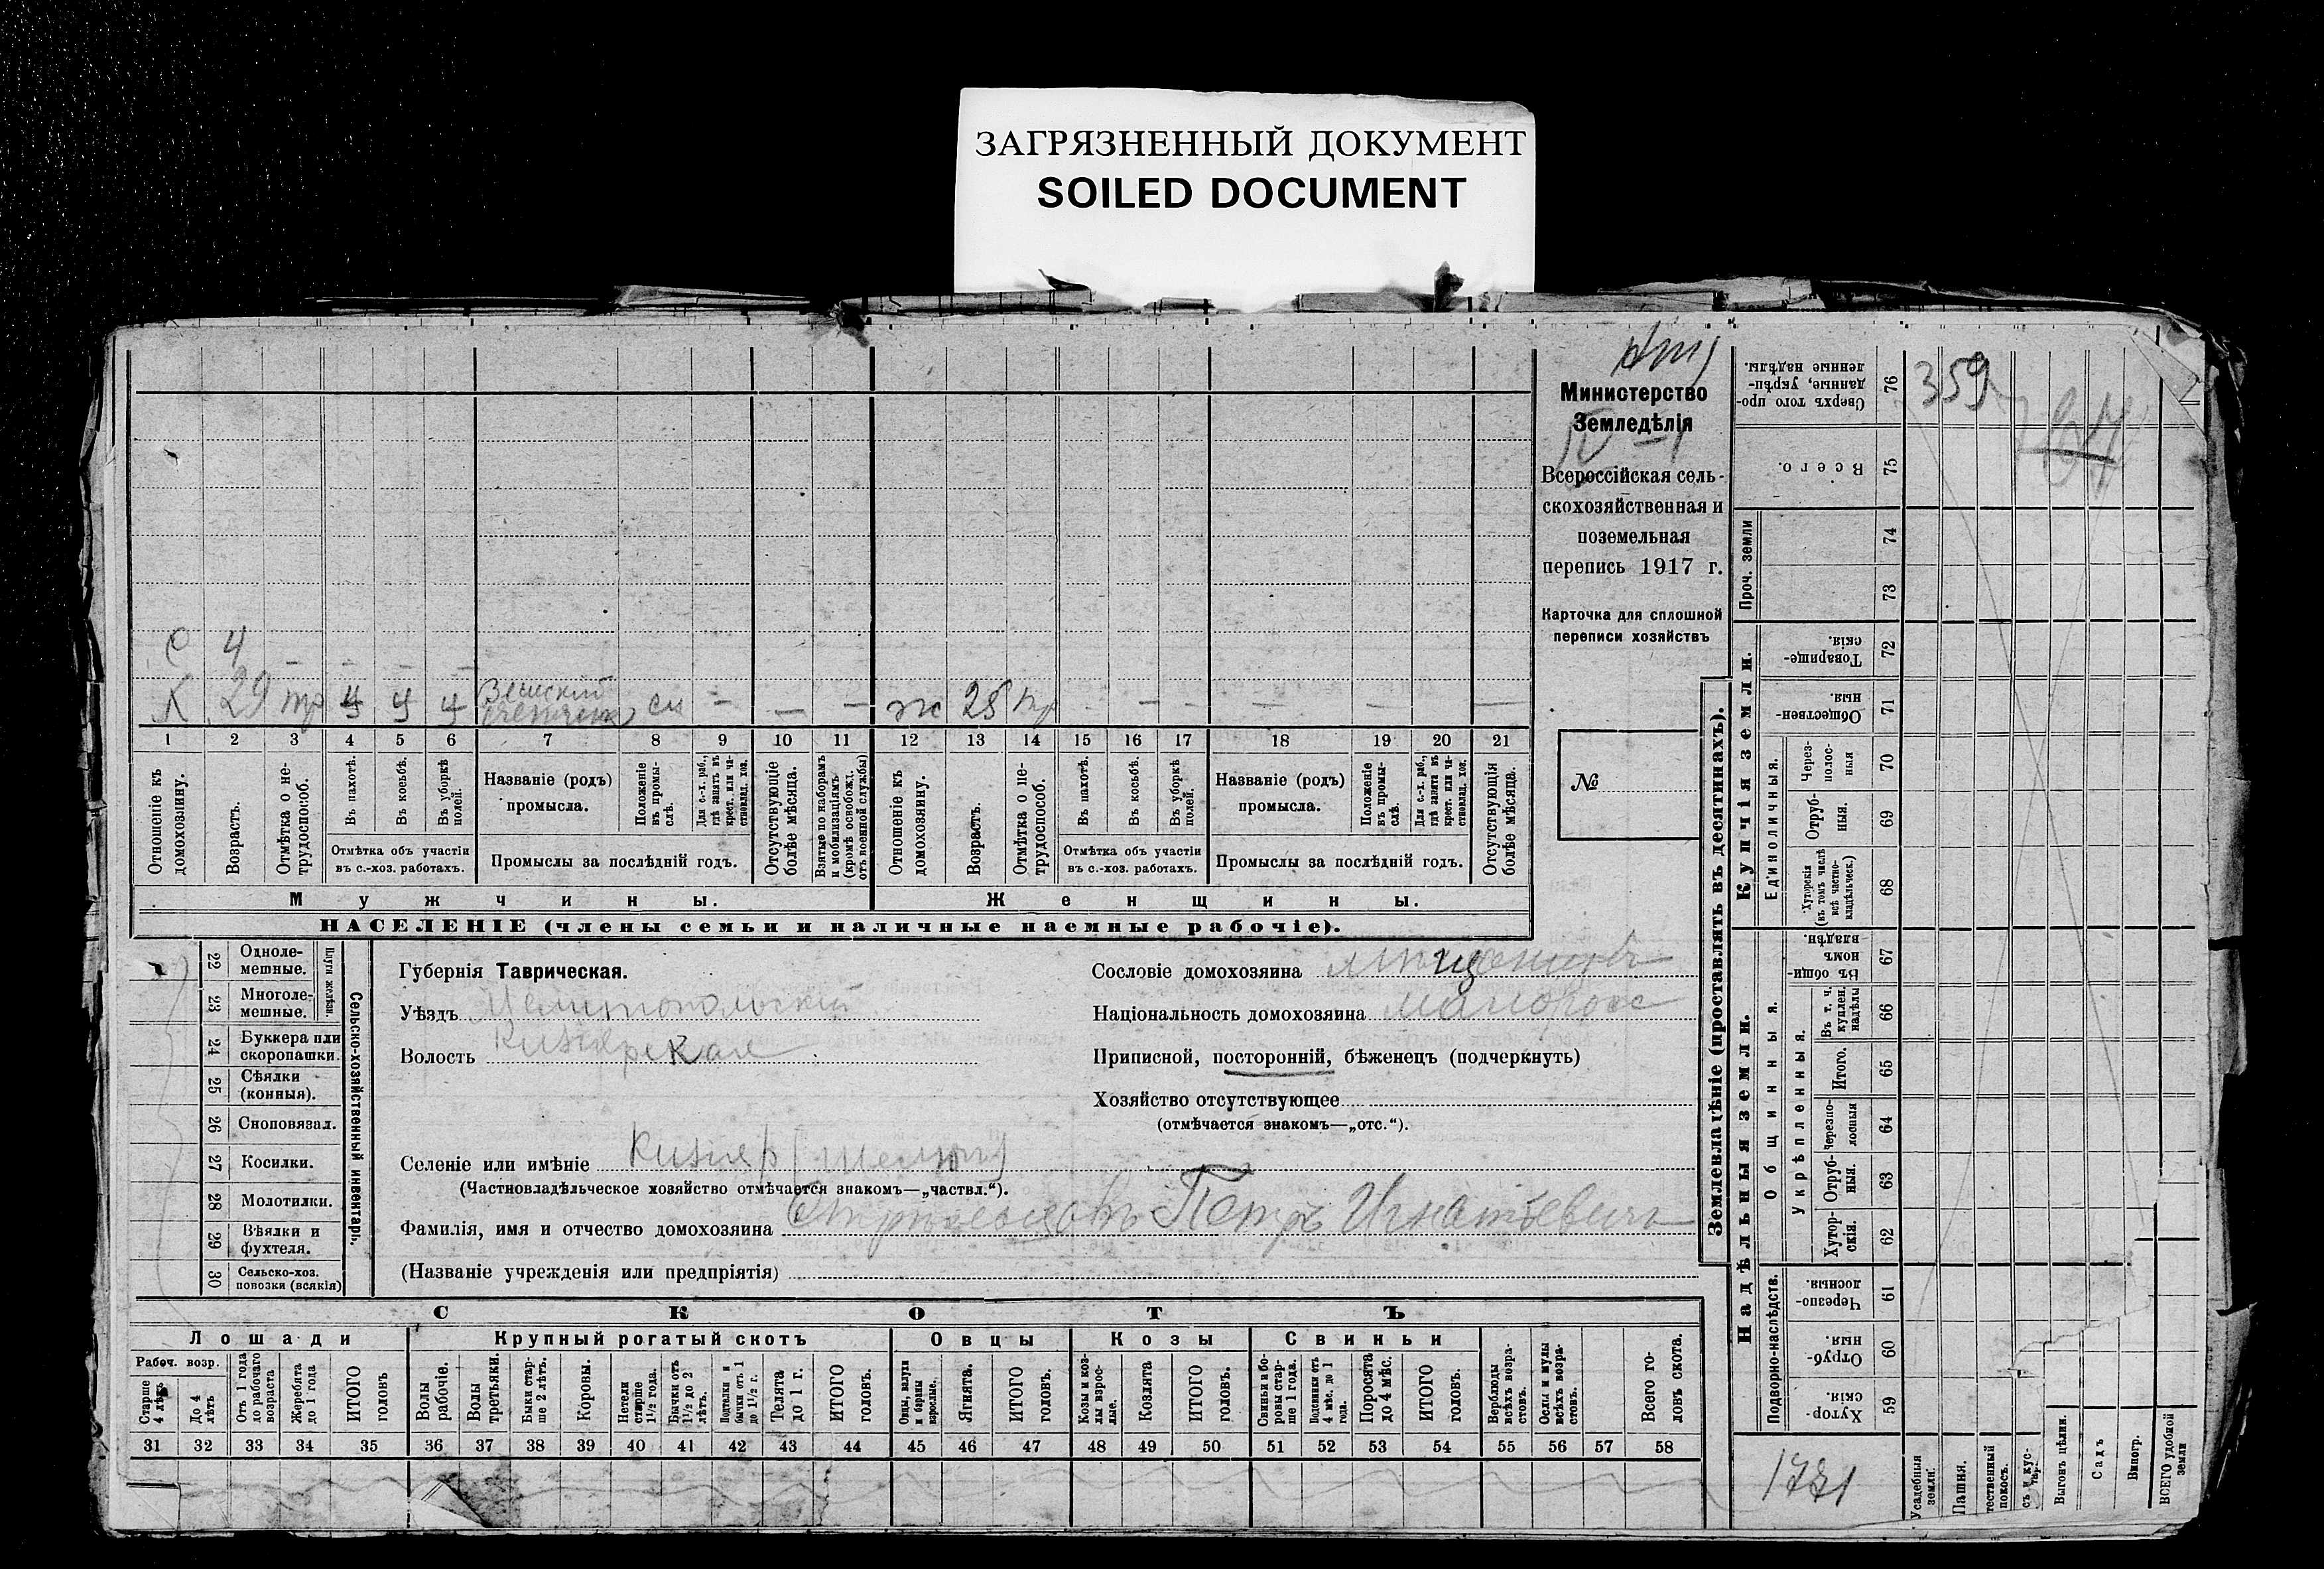 ЗАГРЯЗНЕННЫЙ ДОКУМЕНТ
SOILED DOCUMENT
Министерство
Земледѣлія
Всероссійская сель-
скохозяйственная и
поземельная
перепись 1917 г.
Карточка для сплошной
переписи хозяйствъ
№
С 4 – – – –
Х 29 тр ч ч ч
см – – –
ж 25 тр – – – – – –
1 2 3 4 5 6 7 8 9 10 11 12 13 14 15 16 17 18 19 20 21
Отношеніе къ домохозяину.
Возрастъ.
Отмѣтка о не-трудоспособ.
Въ пахотѣ.
Въ косьбѣ.
Въ уборкѣ полей.
Отмѣтка объ участіи
въ с.-хоз. работахъ.
Названіе (родъ)
промысла.
Положеніе въ промы-слѣ.
Для с.-х. раб., гдѣ занятъ въ крест. или ча-стновлад. хоз.
Промыслы за послѣдній годъ.
Отсутствующіе болѣе мѣсяца.
Взятые по наборамъ и мобилизаціямъ (кромѣ освобожд. отъ военной службы)
Отношеніе къ домохозяину.
Возрастъ.
Отмѣтка о не-трудоспособ.
Въ пахотѣ.
Въ косьбѣ.
Въ уборкѣ полей.
Отмѣтка объ участіи
въ с.-хоз. работахъ.
Названіе (родъ)
промысла.
Положеніе въ промы-слѣ.
Для с.-х. раб., гдѣ занята въ крест. или ча-стновлад. хоз.
Промыслы за послѣдній годъ.
Отсутствующія болѣе мѣсяца.
Мужчины.
Женщины.
НАСЕЛЕНІЕ (члены семьи и наличные наемные рабочіе).
Сельско-хозяйственный инвентарь.
Плуги желѣзн.
22 Одноле-мешные.
23 Многоле-мешные.
24 Буккера или скоропашки.
25 Сѣялки (конныя).
26 Сноповязал.
27 Косилки.
28 Молотилки.
29 Вѣялки и фухтеля.
30 Сельско-хоз. повозки (всякія)
Губернія Таврическая.
Уѣздъ Мелитопольскій
Волость Кизіярская
Селеніе или имѣніе Кизіяр
(Частновладѣльческое хозяйство отмѣчается знакомъ—„частвл.“).
Фамилія, имя и отчество домохозяина Стрѣльцовъ Петръ Игнатьевичъ
(Названіе учрежденія или предпріятія)
Сословіе домохозяина мѣщанинъ
Національность домохозяина малоросс
Приписной, посторонній, бѣженецъ (подчеркнуть)
Хозяйство отсутствующее
(отмѣчается знакомъ—„отс.“).
СКОТЪ
Лошади
Крупный рогатый скотъ
Овцы
Козы
Свиньи
Рабоч. возр.
Старше 4 лѣтъ
До 4 лѣтъ
Отъ 1 года до рабочаго возраста
Жеребята до 1 года
ИТОГО головъ
Волы рабочіе.
Волы третьяки.
Быки стар-ше 2 лѣтъ.
Коровы.
Нетели старше 1½ года.
Бычки отъ 1½ до 2 лѣтъ.
Подтелки и бычки отъ 1 до 1½ г.
Телята до 1 г.
ИТОГО головъ.
Овцы, валухи и бараны взрослые.
Ягнята.
ИТОГО головъ.
Козы и коз-лы взрос-лые.
Козлята
ИТОГО головъ.
Свиньи и бо-ровы стар-ше 1 года.
Подсвинки отъ 4 мѣс. до 1 года.
Поросята до 4 мѣс.
ИТОГО головъ.
Верблюды всѣхъ возра-стовъ.
Ослы и мулы всѣхъ возра-стовъ.
Всего го-ловъ скота.
31 32 33 34 35 36 37 38 39 40 41 42 43 44 45 46 47 48 49 50 51 52 53 54 55 56 57 58
Землевладѣніе (проставлять въ десятинахъ).
Купчія земли.
Надѣльныя земли.
Проч. земли
Единоличныя.
Общинныя.
Укрѣпленныя.
Подворно-наслѣдств.
76 Сверхъ того про-данные, укрѣп-ленные надѣлы.
75 Всего.
74
73
72 Товарище-скія.
71 Обществен-ныя
70 Через-полос-ныя
69 Отруб-ныя.
68 Хуторскія (въ томъ числѣ всѣ частно-владѣльческ.)
67 Въ общин-номъ владѣн.
66 Въ т. ч. куплен. надѣлы
65 Итого.
64 Черезпо-лосныя
63 Отруб-ныя.
62 Хутор-скія.
61 Черезпо-лосныя.
60 Отруб-ныя.
59 Хутор-скія
359
1771
Усадебныя земли.
Пашня.
тественный покосъ.
Выгонъ цѣлин.
Садъ
Виногр.
ВСЕГО удобной земли